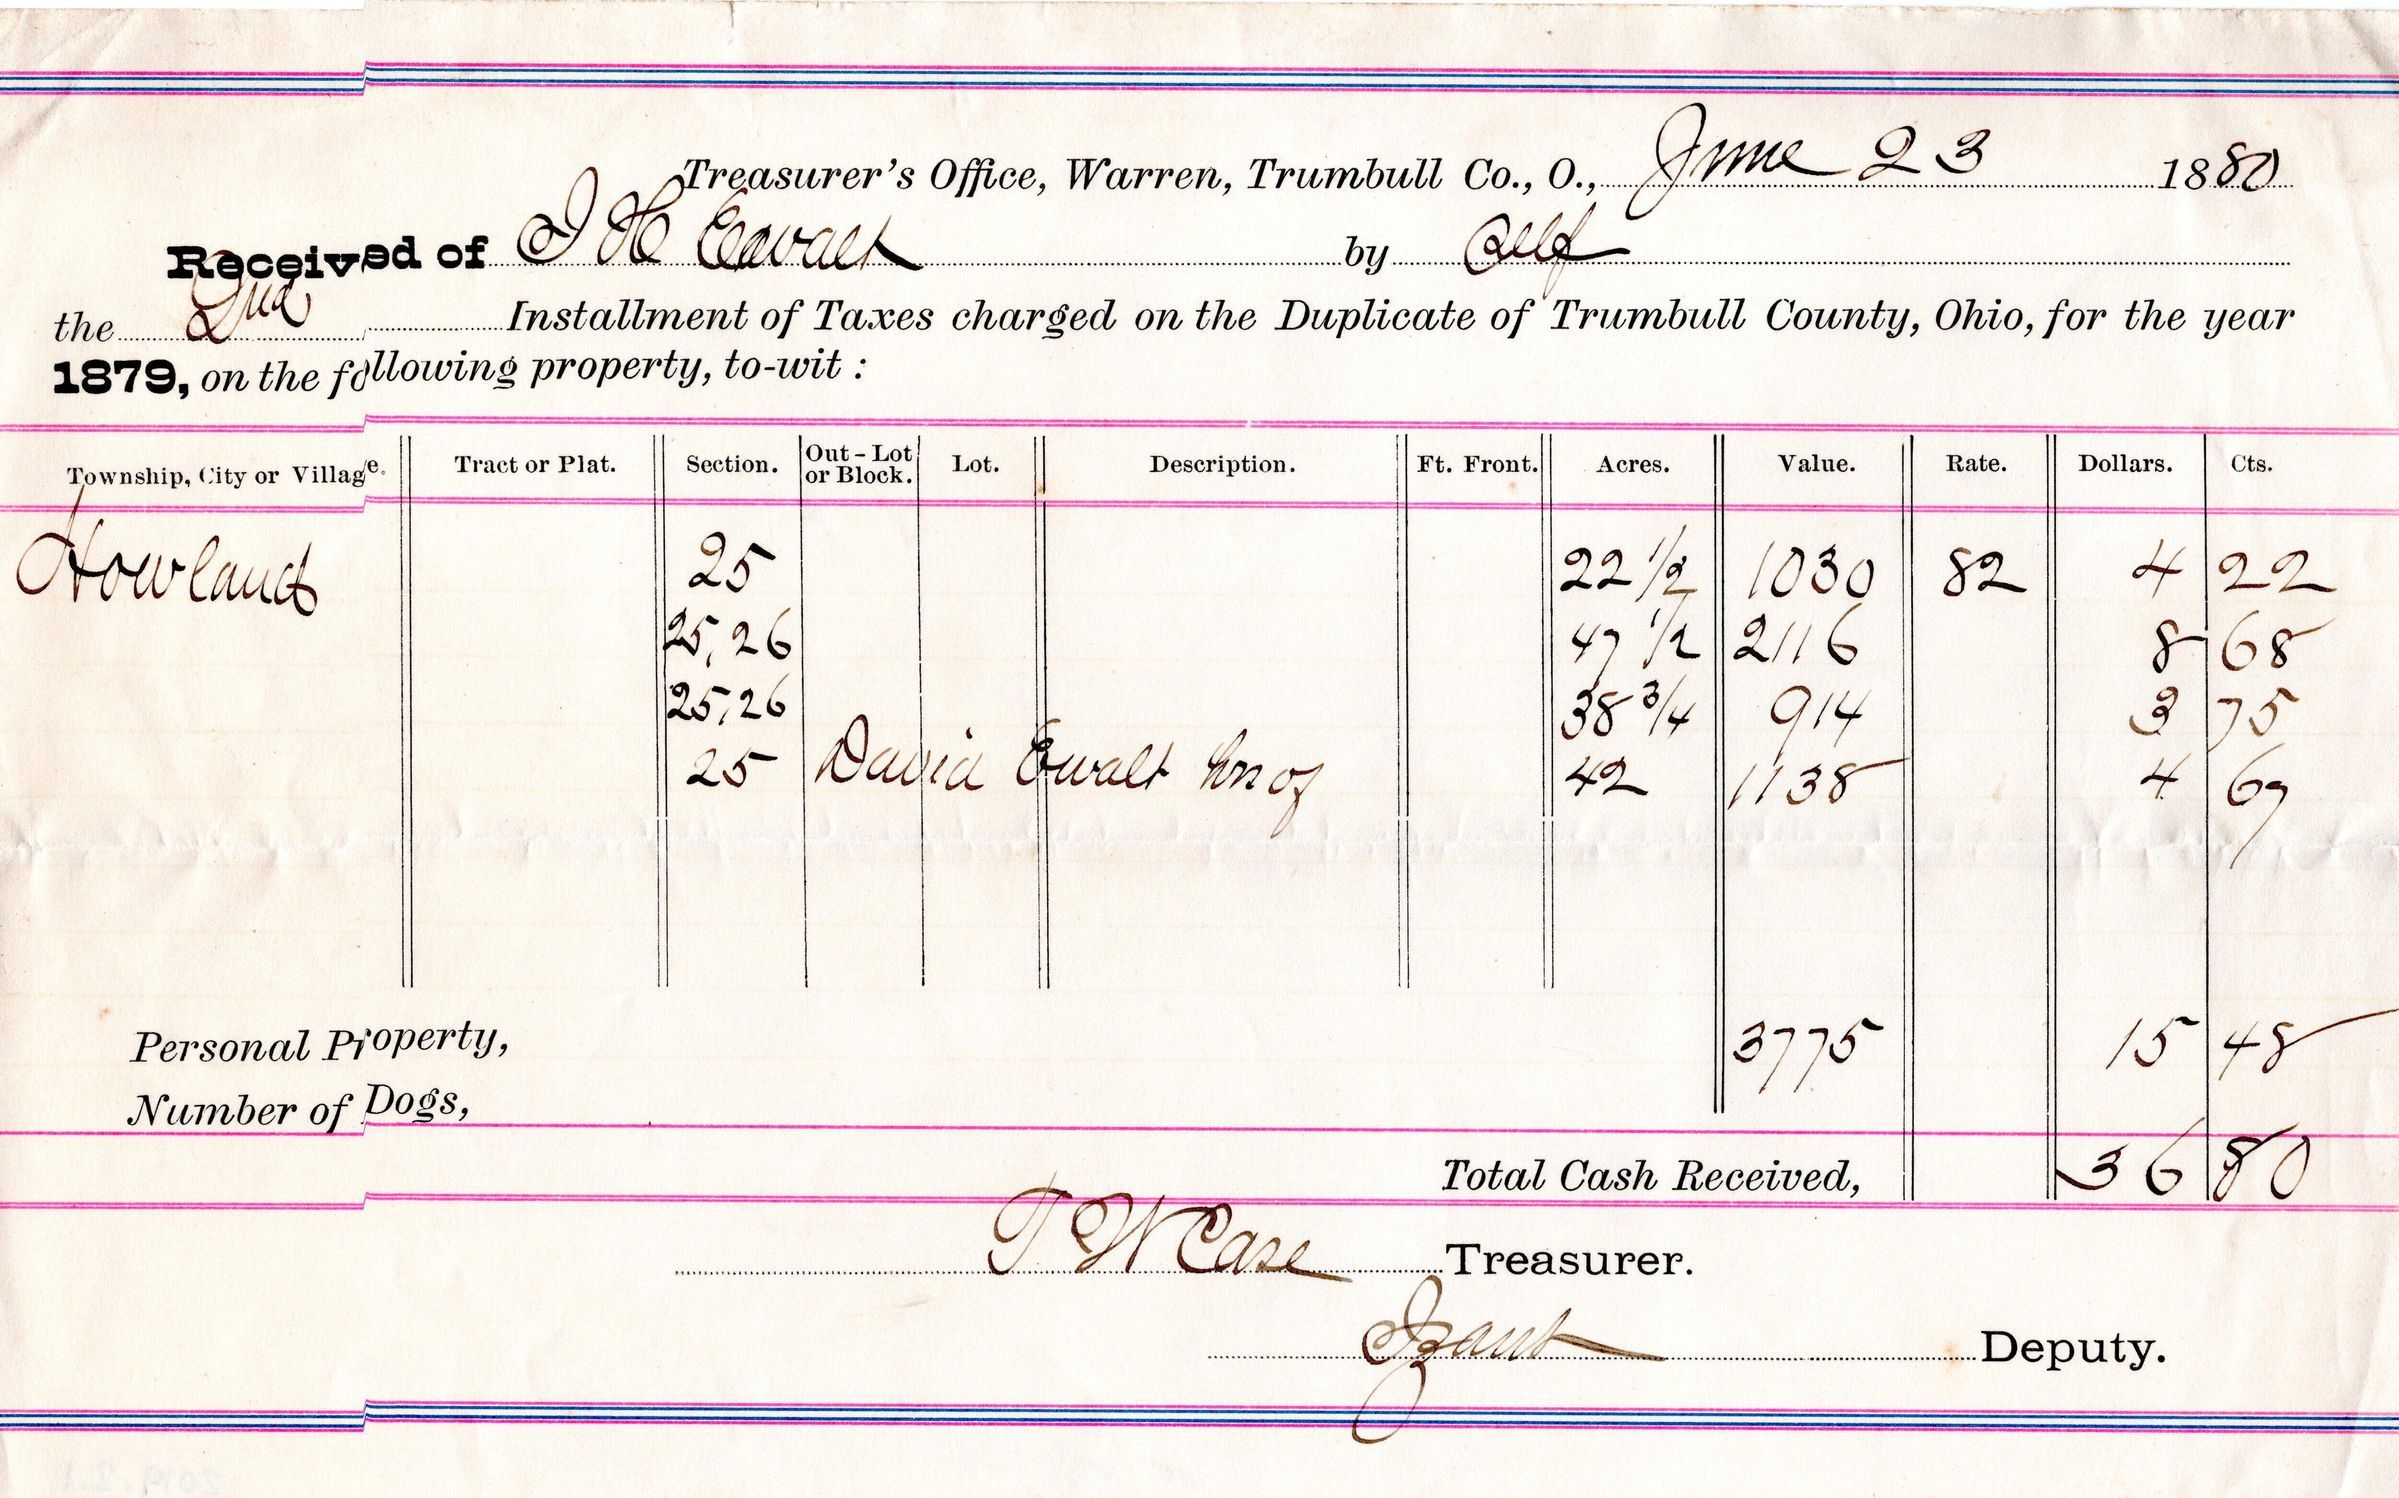 Treasurer's Office, Warren, Trumbull Co., O., June 23 1880
Received of J H Ewalt by Self
the 2nd Installment of Taxes charged on the Duplicate of Trumbull County, Ohio, for the year
1879, on the following property, to-wit :
Township, City or Village. Tract or Plat. Section. Out-Lot or Block. Lot. Description. Ft. Front. Acres. Value. Rate. Dollars. Cts.
Howland 25 22 1/2 1030 82 4 22
25, 26 47 1/2 2116 8 68
25, 26 38 3/4 914 3 75
25 David Ewalt hrs of 42 1138 4 67
Personal Property, 3775 15 48
Number of Dogs,
Total Cash Received, 36 80
T W Case Treasurer.
Deputy.
2019.2.1